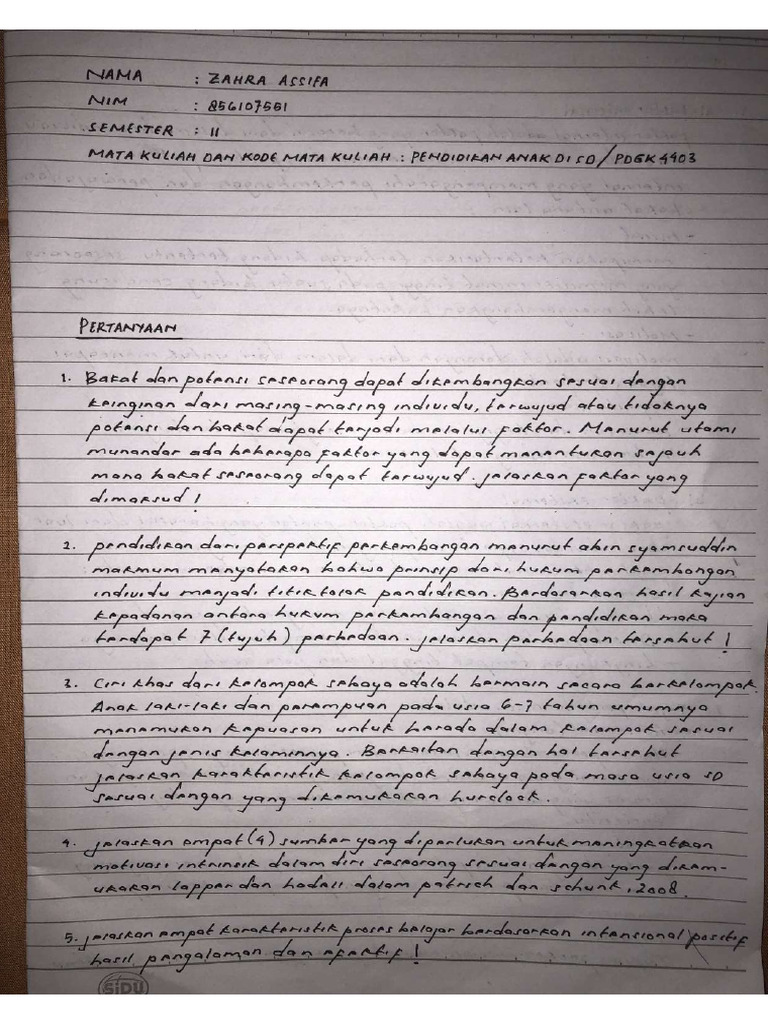 NAMA : ZAHRA ASSIFA
NIM : 856107551
SEMESTER : II
MATA KULIAH DAN KODE MATA KULIAH : PENDIDIKAN ANAK DI SD / PDGK 4403
PERTANYAAN
1. Bakat dan potensi seseorang dapat dikembangkan sesuai dengan
keinginan dari masing-masing individu, terwujud atau tidaknya
potensi dan bakat dapat terjadi melalui faktor. Menurut utami
munandar ada beberapa faktor yang dapat menentukan sejauh
mana bakat seseorang dapat terwujud. jelaskan faktor yang
dimaksud!
2. pendidikan dari perspektif perkembangan menurut abin syamsuddin
makmum menyatakan bahwa prinsip dari hukum perkembangan
individu menjadi titik tolak pendidikan. Berdasarkan hasil kajian
kepadanan antara hukum perkembangan dan pendidikan maka
terdapat 7 (tujuh) perbedaan. jelaskan perbedaan tersebut!
3. Ciri khas dari kelompok sebaya adalah bermain secara berkelompok.
Anak laki-laki dan perempuan pada usia 6-7 tahun umumnya
menemukan kepuasan untuk berada dalam kelompok sesuai
dengan jenis kelaminnya. Berkaitan dengan hal tersebut
jelaskan karakteristik kelompok sebaya pada masa usia SD
sesuai dengan yang dikemukakan hurclock.
4. jelaskan empat (4) sumber yang diperlukan untuk meningkatkan
motivasi intrinsik dalam diri seseorang sesuai dengan yang dikem-
ukakan lepper dan hodell dalam patrich dan schunk, 2008.
5. jelaskan empat karakteristik proses belajar berdasarkan intensional positif
hasil pengalaman dan efektif!
SiDU